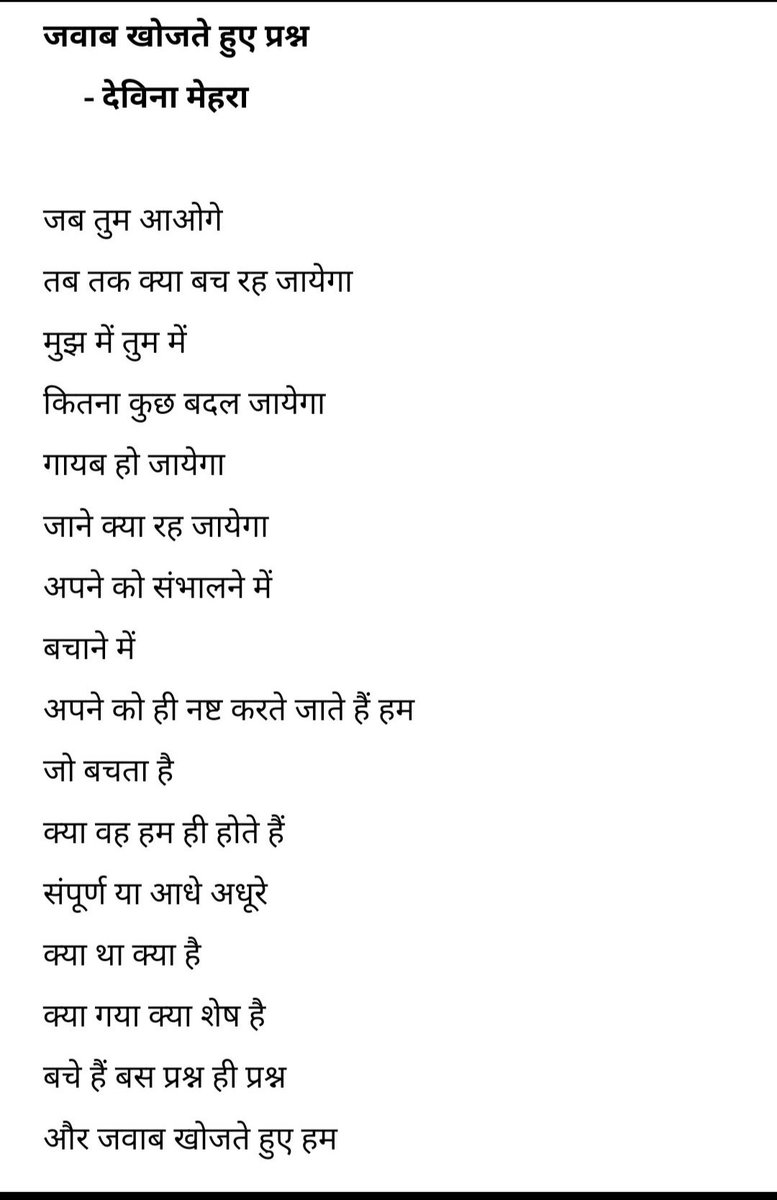 जवाब खोजते हुए प्रश्न
- देविना मेहरा
जब तुम आओगे
तब तक क्या बच रह जायेगा
मुझ में तुम में
कितना कुछ बदल जायेगा
गायब हो जायेगा
जाने क्या रह जायेगा
अपने को संभालने में
बचाने में
अपने को ही नष्ट करते जाते हैं हम
जो बचता है
क्या वह हम ही होते हैं
संपूर्ण या आधे अधूरे
क्या था क्या है
क्या गया क्या शेष है
बचे हैं बस प्रश्न ही प्रश्न
और जवाब खोजते हुए हम